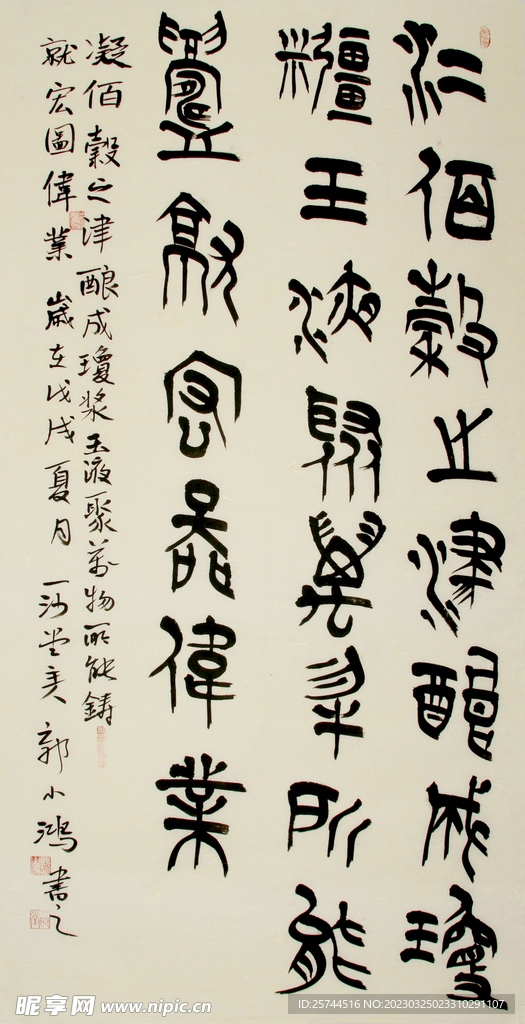 凝佰穀之津酿成瓊
漿玉液聚萬物所能
鑄就宏圖偉業
凝佰穀之津酿成瓊浆玉液聚萬物所能鑄
就宏圖偉業 歲在戊戌夏月 郭小鸿書之
昵享网 www.nipic.cn
ID:25744516 NO:20230325023310291107